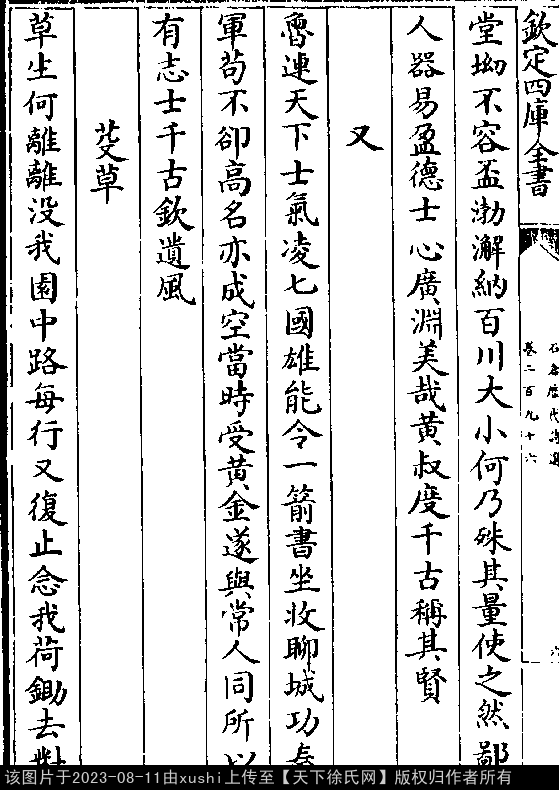 欽定四庫全書
石倉歷代詩選
卷二百九十六
六
堂坳不容盃渤澥納百川大小何乃殊其量使之然鄙
人器易盈德士心廣淵美哉黄叔度千古稱其賢
又
魯連天下士氣凌七國雄能令一箭書坐收聊城功秦
軍苟不卻高名亦成空當時受黄金遂與常人同所以
有志士千古欽遺風
芟草
草生何離離没我園中路每行又復止念我荷鋤去對
该图片于2023-08-11由xushi上传至【天下徐氏网】版权归作者所有